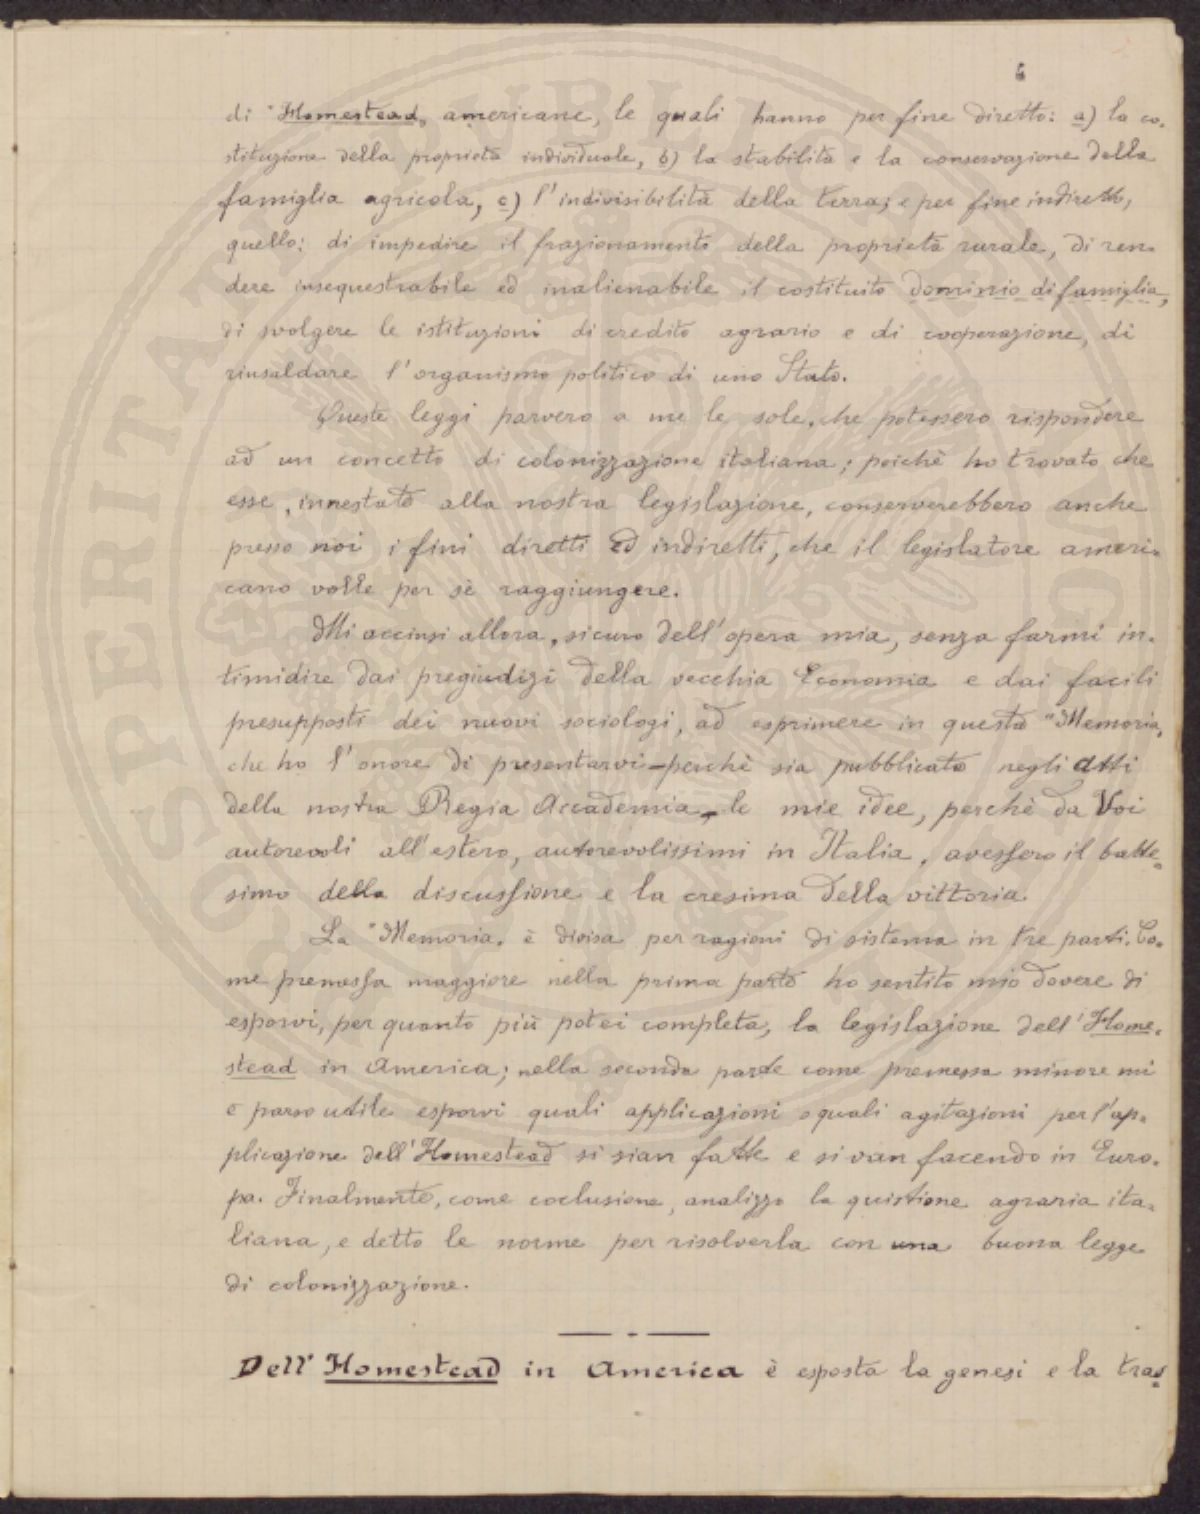 6
di "Homestead„ americane, le quali hanno per fine diretto: a) la co-
stituzione della proprietà individuale, b) la stabilità e la conservazione della
famiglia agricola, c) l'indivisibilità della terra; e per fine indiretto,
quello: di impedire il frazionamento della proprietà rurale, di ren-
dere insequestrabile ed inalienabile il costituito dominio di famiglia,
di svolgere le istituzioni di credito agrario e di cooperazione, di
rinsaldare l'organismo politico di uno Stato.
Queste leggi parvero a me le sole, che potessero rispondere
ad un concetto di colonizzazione italiana; poichè ho trovato che
esse, innestate alla nostra legislazione, conserverebbero anche
presso noi i fini diretti ed indiretti, che il legislatore ameri-
cano volle per sè raggiungere.
Mi accinsi allora, sicuro dell'opera mia, senza farmi in-
timidire dai pregiudizi della vecchia Economia e dai facili
presupposti dei nuovi sociologi, ad esprimere in questa "Memoria„
che ho l'onore di presentarvi - perchè sia pubblicata negli Atti
della nostra Regia Accademia - le mie idee, perchè da Voi
autorevoli all'estero, autorevolissimi in Italia, avessero il batte-
simo della discussione e la cresima della vittoria.
La "Memoria„ è divisa per ragioni di sistema in tre parti. Co-
me premessa maggiore nella prima parte ho sentito mio dovere di
esporvi, per quanto più potei completa, la legislazione dell'Home-
stead in America; nella seconda parte come premessa minore mi
è parso utile esporvi quali applicazioni o quali agitazioni per l'ap-
plicazione dell'Homestead si sian fatte e si van facendo in Euro-
pa. Finalmente, come coclusione, analizzo la quistione agraria ita-
liana, e detto le norme per risolverla con una buona legge
di colonizzazione.
Dell'Homestead in America è esposta la genesi e la tra-
PROSPERITATI PUBLICAE